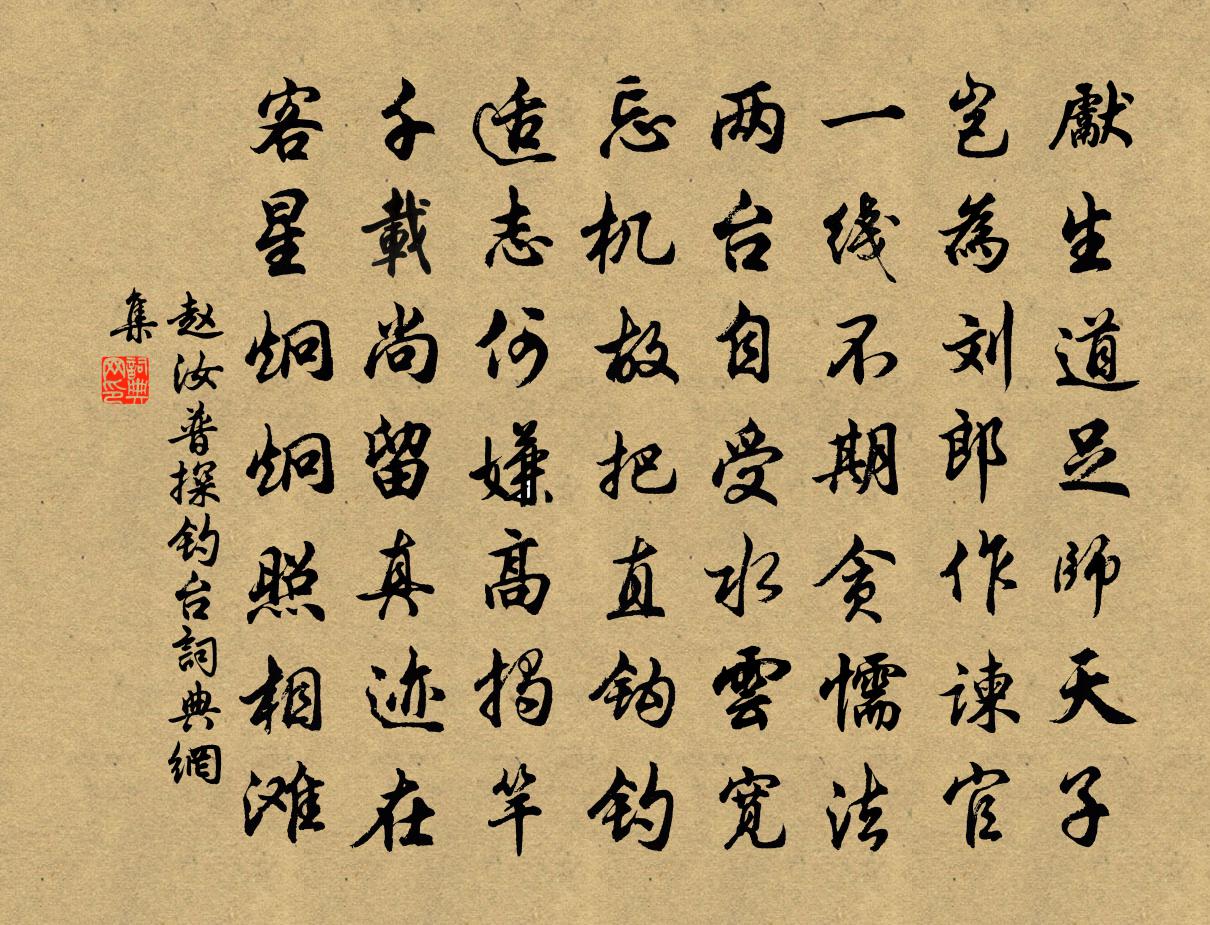 獻生道足師天子
岂為刘郎作諫官
一綫不期贪懦法
两台自受水雲寬
忘机故把直钩钓
适志何嫌高揭竿
千載尚留真迹在
客星炯炯照相滩
赵汝普探钓台詞典網
集
詞典网印